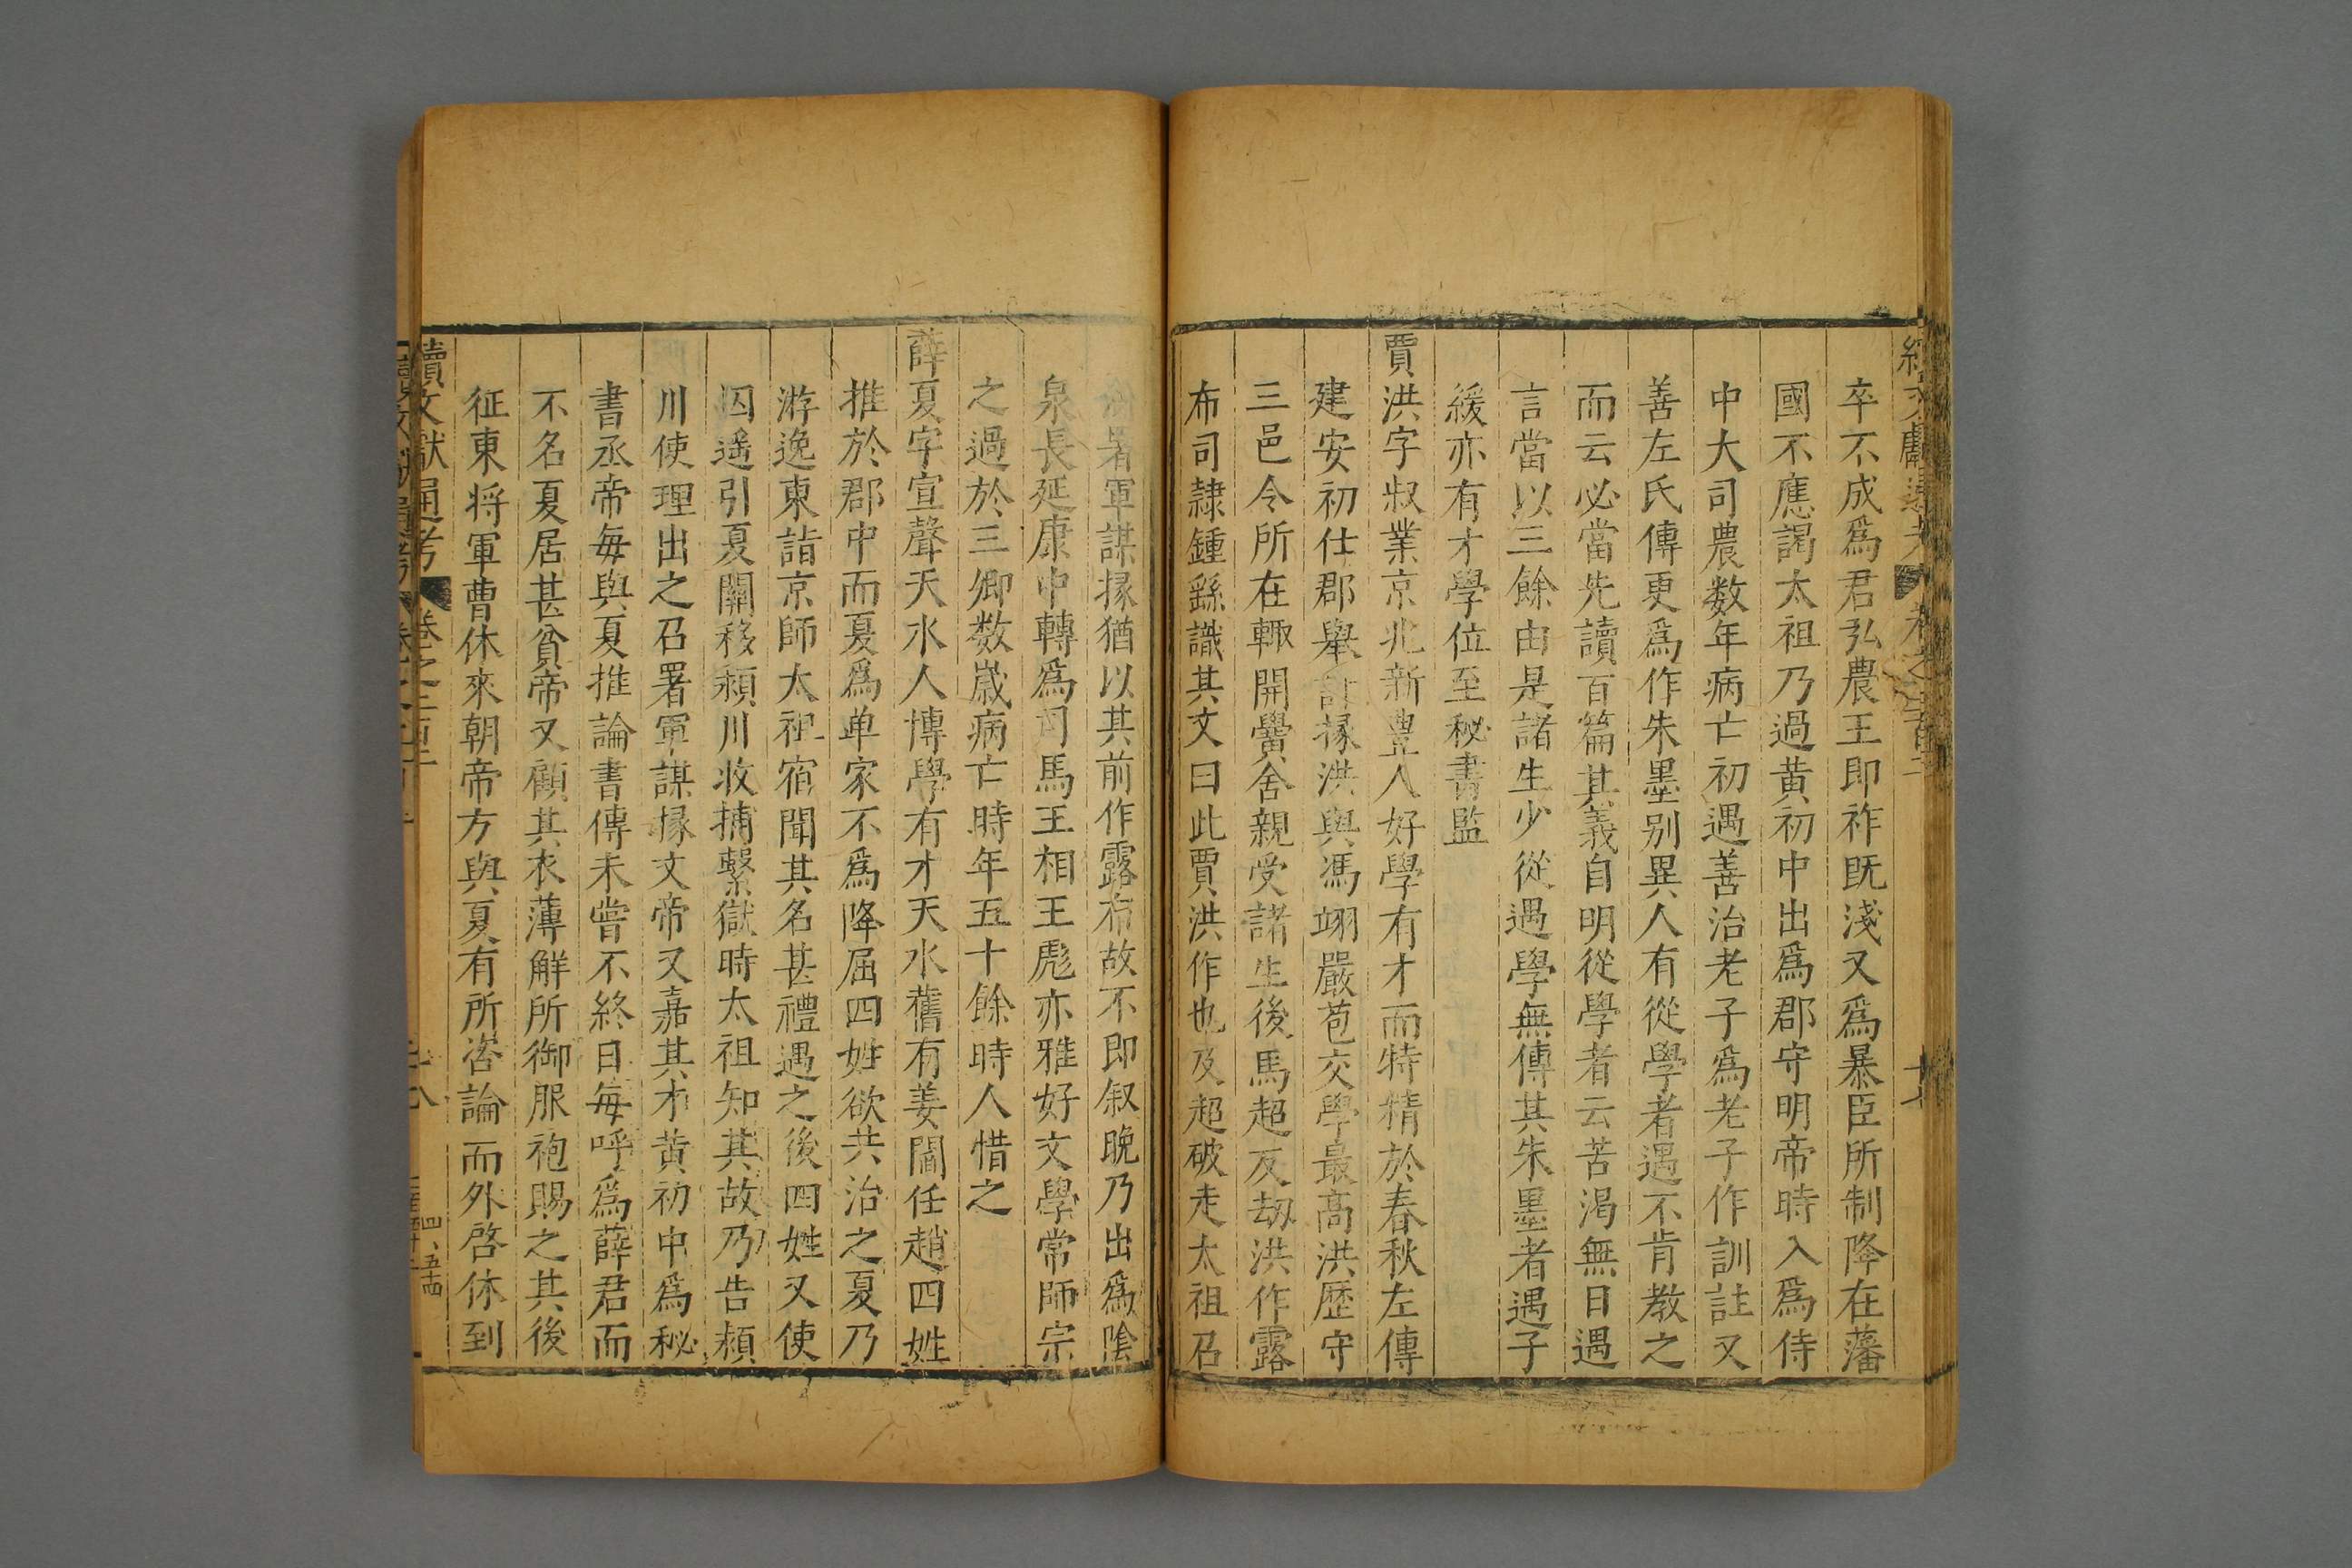 卒不成爲君弘農王即祚旣淺又爲暴臣所制降在藩
國不應謁太祖乃過黄初中出爲郡守明帝時入爲侍
中大司農数年病亡初遇善治老子爲老子作訓註又
善左氏傳更爲作朱墨别異人有從學者遇不肯教之
而云必當先讀百篇其義自明從學者云苦渇無日遇
言當以三餘由是諸生少從遇學無傳其朱墨者遇子
緩亦有才學位至秘書監
賈洪字叔業京兆新豊人好學有才而特精於春秋左傳
建安初仕郡舉計掾洪與馮翊嚴苞交學最高洪歷守
三邑令所在輙開黌舍親受諸生後馬超反劫洪作露
布司隷鍾繇識其文曰此賈洪作也及超破走太祖召
署軍謀掾猶以其前作露布故不即叙晚乃出爲陰
泉長延康中轉爲司馬王相王彪亦雅好文學常師宗
之過於三卿数嵗病亡時年五十餘時人惜之
薛夏字宣聲天水人博學有才天水舊有姜閻任趙四姓
推於郡中而夏爲单家不爲降屈四姓欲共治之夏乃
游逸東詣京師太祖宿聞其名甚禮遇之後四姓又使
囚遙引夏關移頴川收捕繫獄時太祖知其故乃告頴
川使理出之召署軍謀掾文帝又嘉其才黄初中爲秘
書丞帝每與夏推論書傳未嘗不終日每呼爲薛君而
不名夏居甚貧帝又顧其衣薄解所御服袍賜之其後
征東将軍曹休來朝帝方與夏有所咨論而外啓休到
續文獻通考 卷之二百一 十八